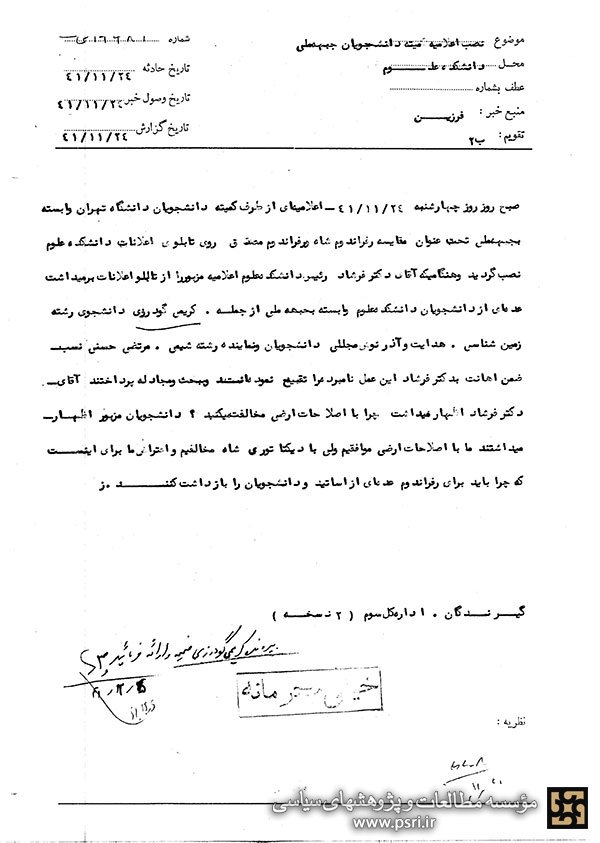 موضوع نصب اعلامیه کمیته دانشجویان جبهه‌ملی
شماره
محل دانشکده علـــوم
تاریخ حادثه ۴۱/۱۱/۲۴
عطف بشماره
تاریخ وصول خبر ۴۱/۱۱/۲۴
منبع خبر: فرزیـــن
تاریخ گزارش ۴۱/۱۱/۲۴
تقویم: ب۲
صبح روز روز چهارشنبه ۴۱/۱۱/۲۴ - اعلامیه‌ای از طرف کمیته دانشجویان دانشگاه تهران وابسته
بجبهه‌ملی تحت عنوان مقایسه رفراندوم شاه و رفراندوم مصدق روی تابلوی اعلانات دانشکده علوم
نصب گردید و هنگامیکه آقای دکتر فرشاد رئیس دانشکده علوم اعلامیه مزبور را از تابلو اعلانات برمیداشت
عده‌ای از دانشجویان دانشکده علوم وابسته بجبهه ملی از جمله . کریمی گودرزی دانشجوی رشته
زمین شناسی . هدایت و آذرنوش مجللی دانشجویان و نماینده رشته شیمی . مرتضی حسنی نسبــ
ضمن اهانت بدکتر فرشاد این عمل نامبرده را تقبیح نموده و ببحث و مجادله پرداختند آقای‌ــ
دکتر فرشاد اظهار میداشت چرا با اصلاحات ارضی مخالفت میکنید ؟ دانشجویان مزبور اظهار‌ــ
میداشتند ما با اصلاحات ارضی موافقیم ولی با دیکتاتوری شاه مخالفیم و اعتراض ما برای اینست
که چرا باید برای رفراندوم عده‌ای از اساتید و دانشجویان را بازداشت کننــــد .ز
گیرندگان . اداره کل سوم ( ۲ نسخه )
کریمی گودرزی ضمیمه و ارائه فرمائید
خیلی محرمانه
نظریه :
مؤسسه مطالعات و پژوهشهای سیاسی
www.psri.ir